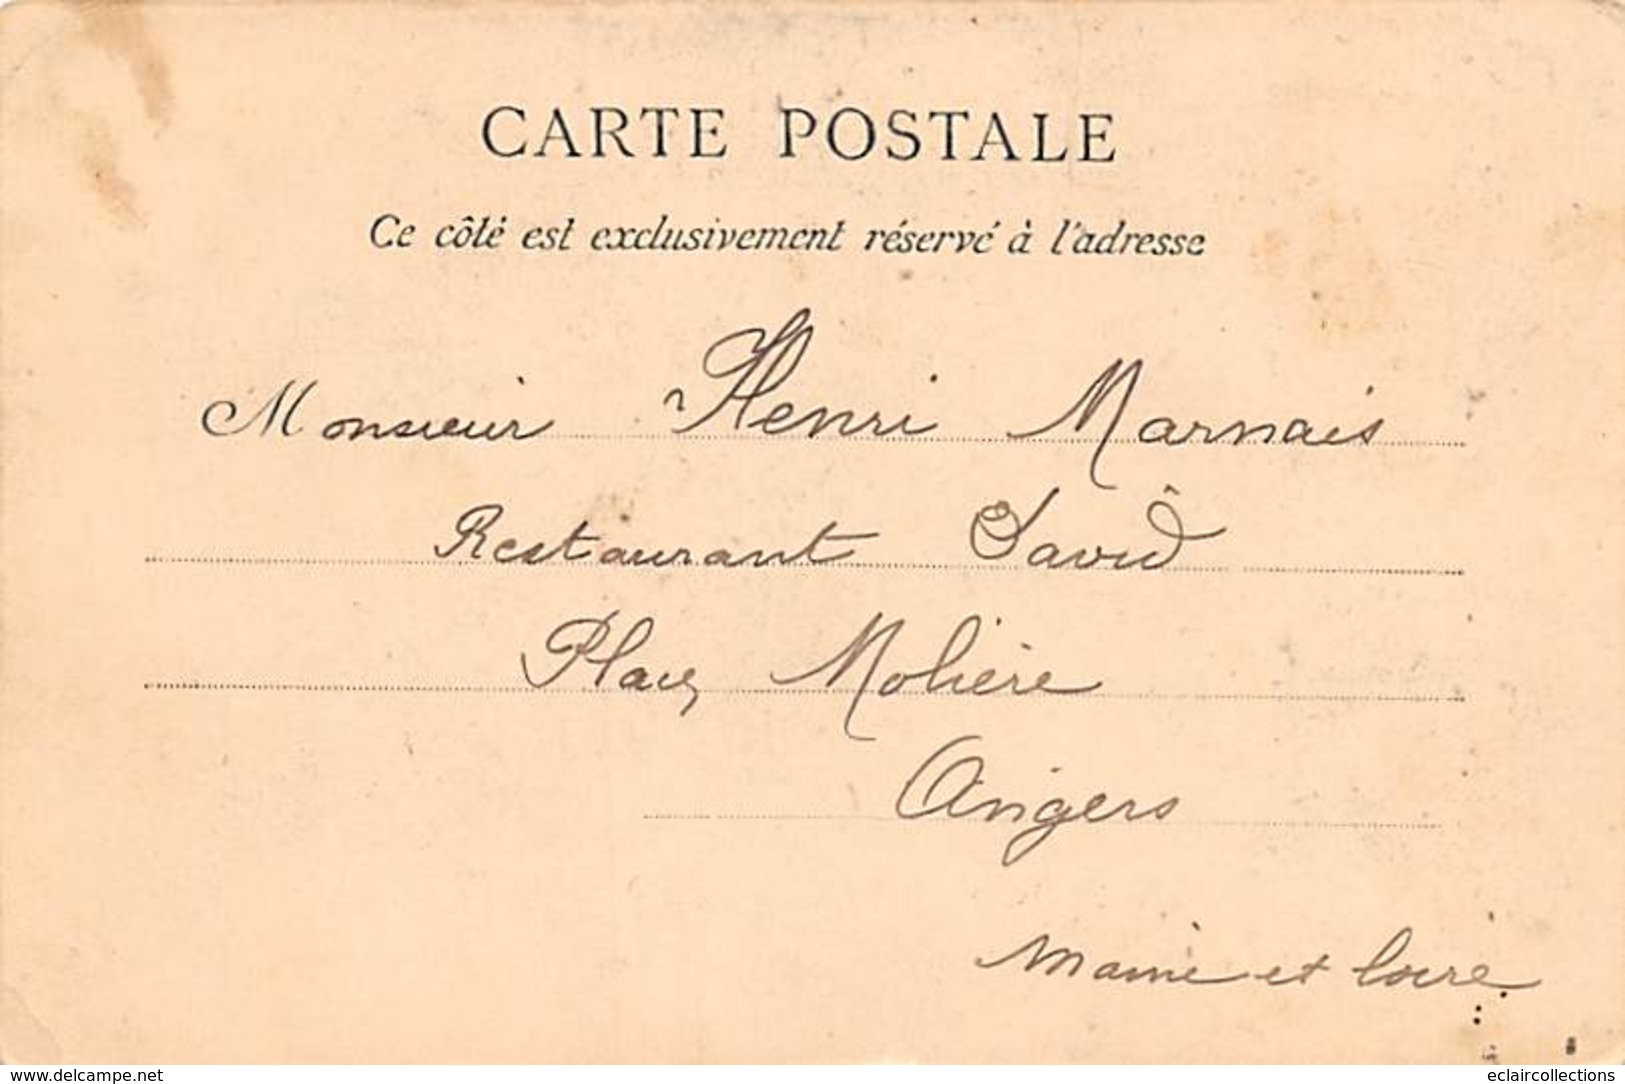 CARTE POSTALE
Ce côté est exclusivement réservé à l'adresse
Monsieur Henri Marnais
Restaurant David
Place Molière
Angers
Maine et Loire
www.delcampe.net
eclaircollections